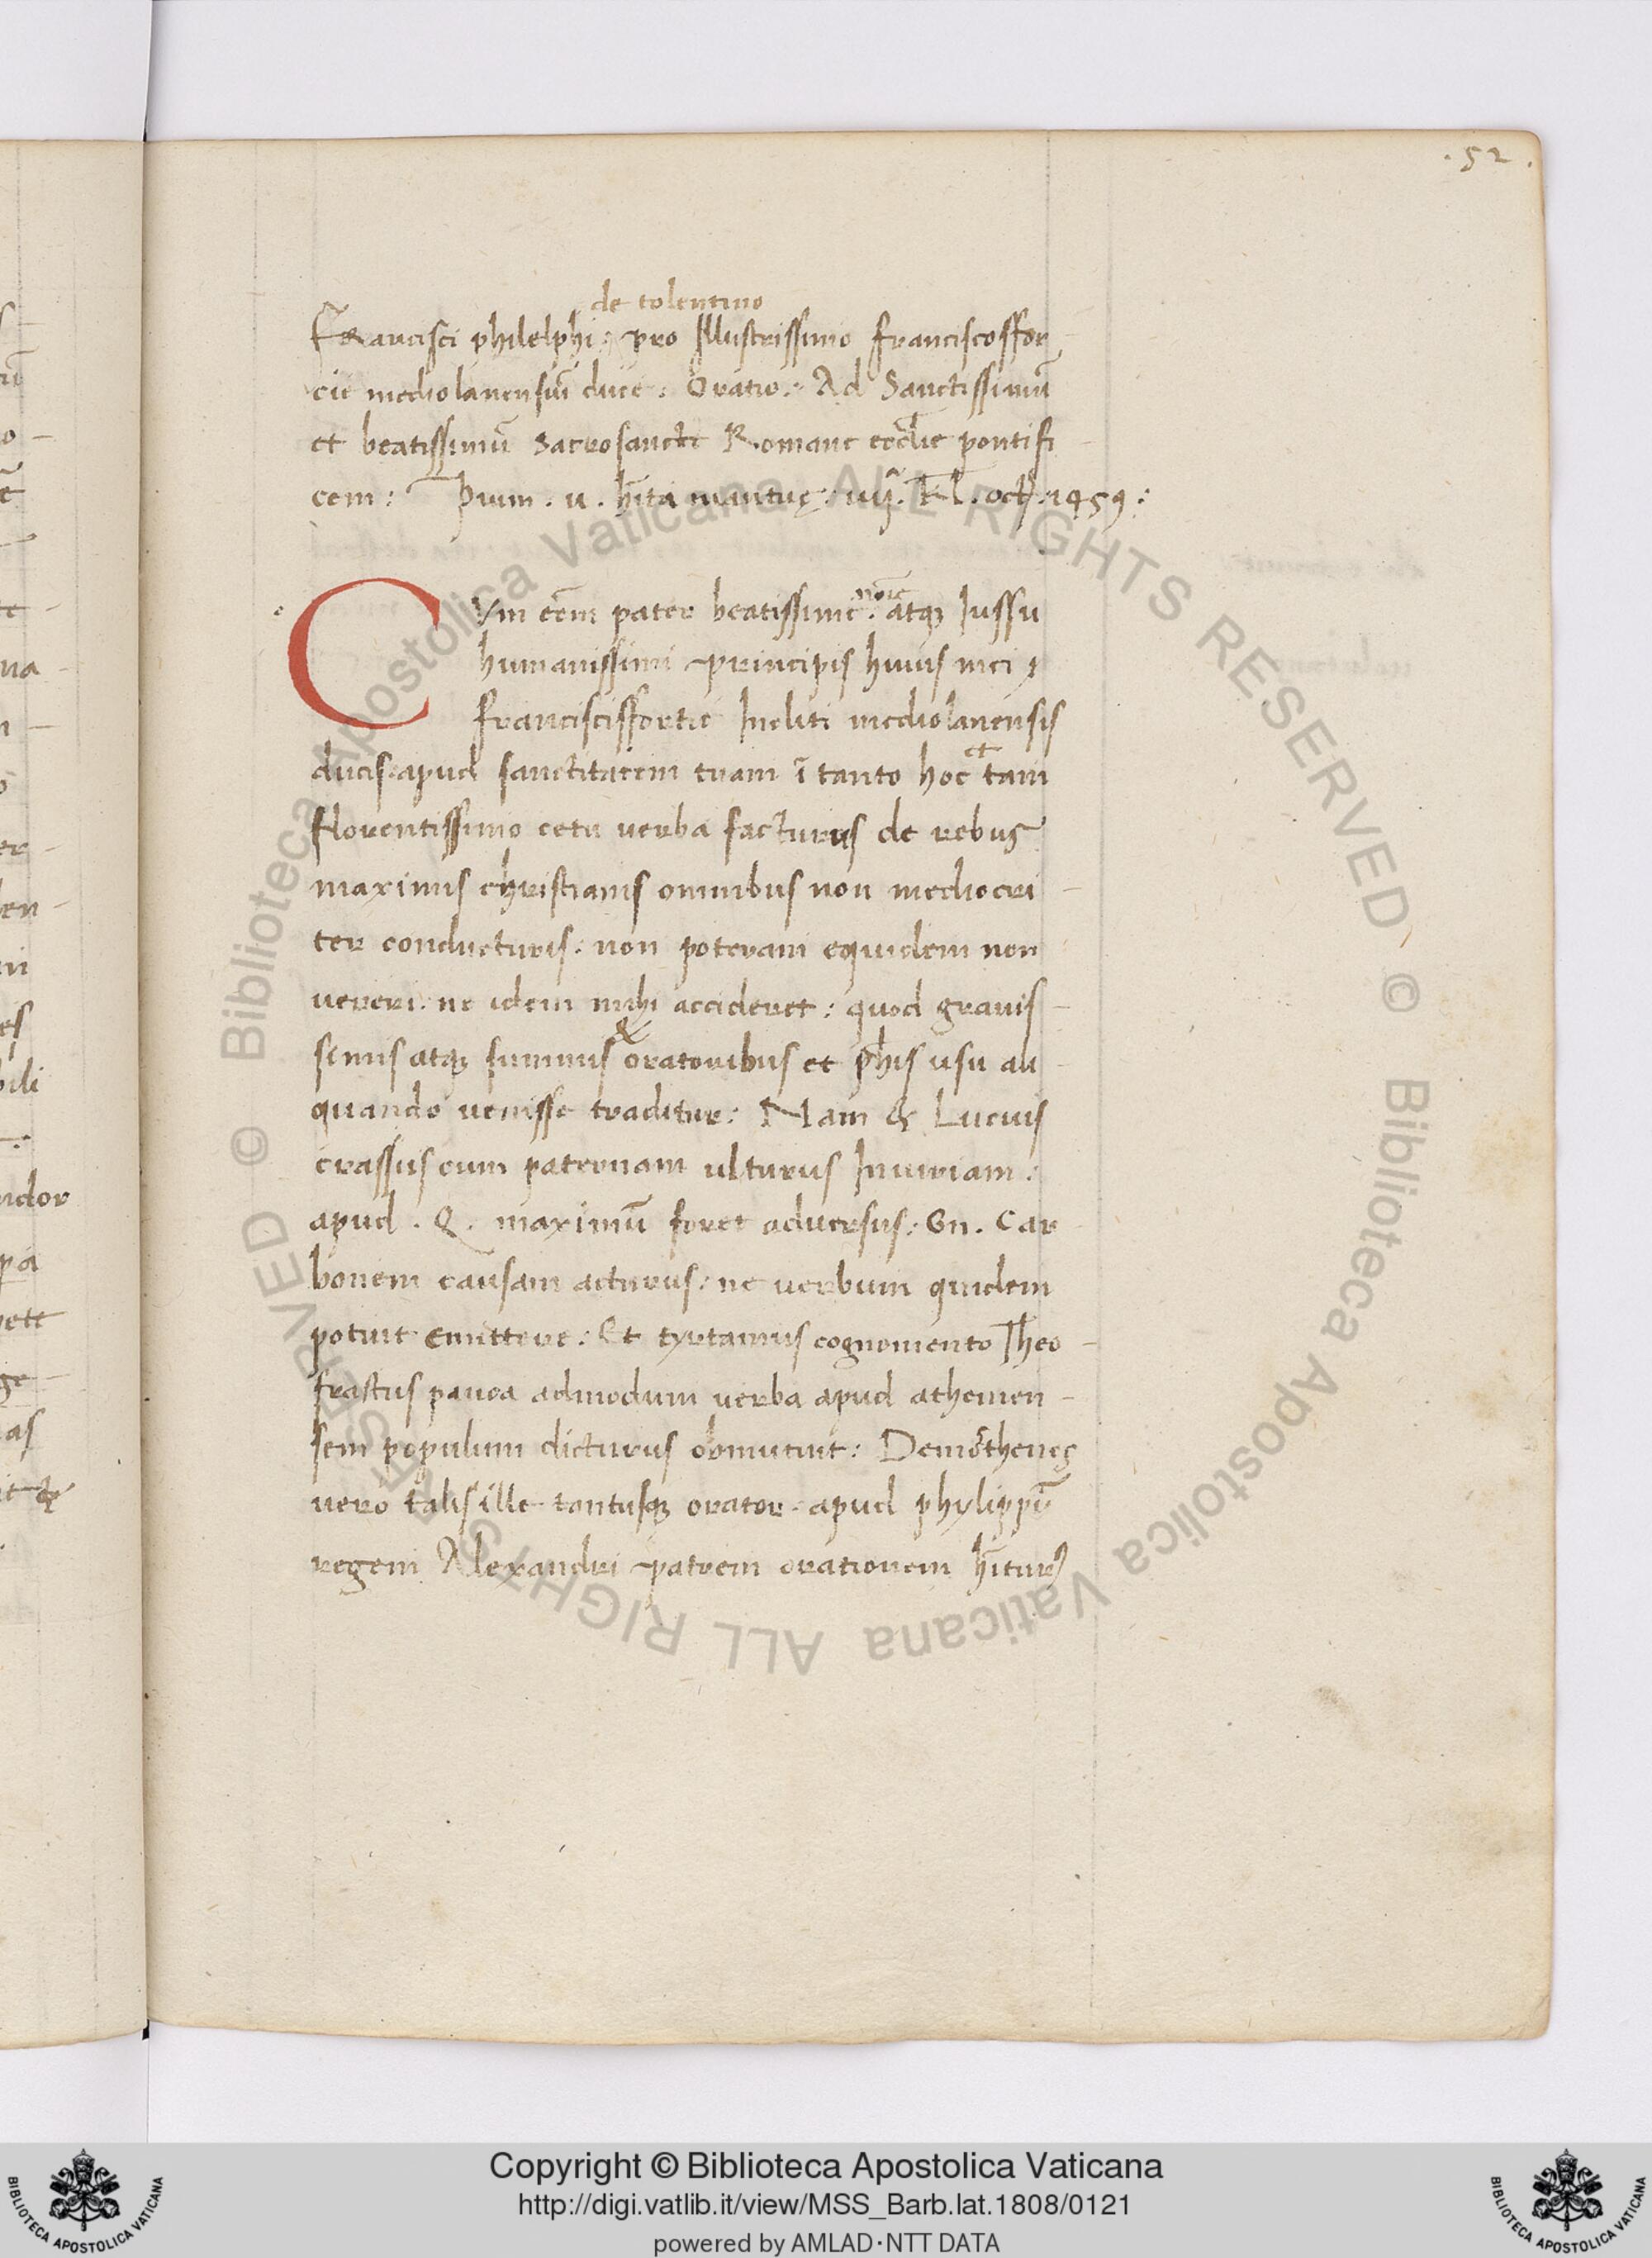 . 52 .
de tolentino
Francisci philelphi : pro Illustrissimo francisco sfor
cie mediolanensiũ duce : Oratio : Ad Sanctissimũ
et beatissimũ sacrosancte Romane eccl̄ie pontifi
cem : Pium . u . h̄ita mantuę : Kl . oct . 1459 :
noīe
CVm eēm pater beatissime : atqꝫ Iussu
humanissimi principis huius mei
francisci sfortie Incliti mediolanensis
et
ducis apud sanctitatem tuam ĩ tanto hoc tam
florentissimo cetu uerba facturus de rebus
maximis christianis omnibus non mediocri
ter conducturis : non poteram equidem non
uereri . ne idem mihi accideret : quod grauis
&
simis atqꝫ summis oratoribus et ph̄is usu ali
quando uenisse traditur : Nam & Lucius
crassus cum paternam ulturus Iniuriam :
apud . Q . maximũ foret aduersus : Gn . Car
bonem causam acturus : ne uerbum quidem
potuit emittere : Et tyrtamus cognomento Theo
frastus pauca admodum uerba apud athenien
sem populum dicturus obmutuit : Demosthenes
uero talis ille tantusqꝫ orator . apud phylippũ
regem Alexandri patrem orationem h̄iturꝰ
© Biblioteca Apostolica Vaticana ALL RIGHTS RESERVED © Biblioteca Apostolica Vaticana ALL RIGHTS RESERVED
Copyright © Biblioteca Apostolica Vaticana
http://digi.vatlib.it/view/MSS_Barb.lat.1808/0121
powered by AMLAD·NTT DATA
BIBLIOTECA APOSTOLICA VATICANA
BIBLIOTECA APOSTOLICA VATICANA